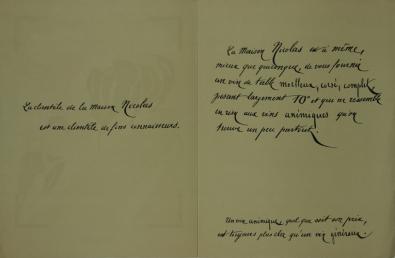 La clientèle de la Maison Nicolas
est une clientèle de fins connaisseurs.
La Maison Nicolas est à même,
mieux que quiconque, de vous fournir
un vin de table moelleux, corsé, complet,
pesant largement 10° et qui ne ressemble
en rien aux vins anémiques qu'on
trouve un peu partout.
Un vin anémique, quel que soit son prix,
est toujours plus cher qu'un vin généreux.